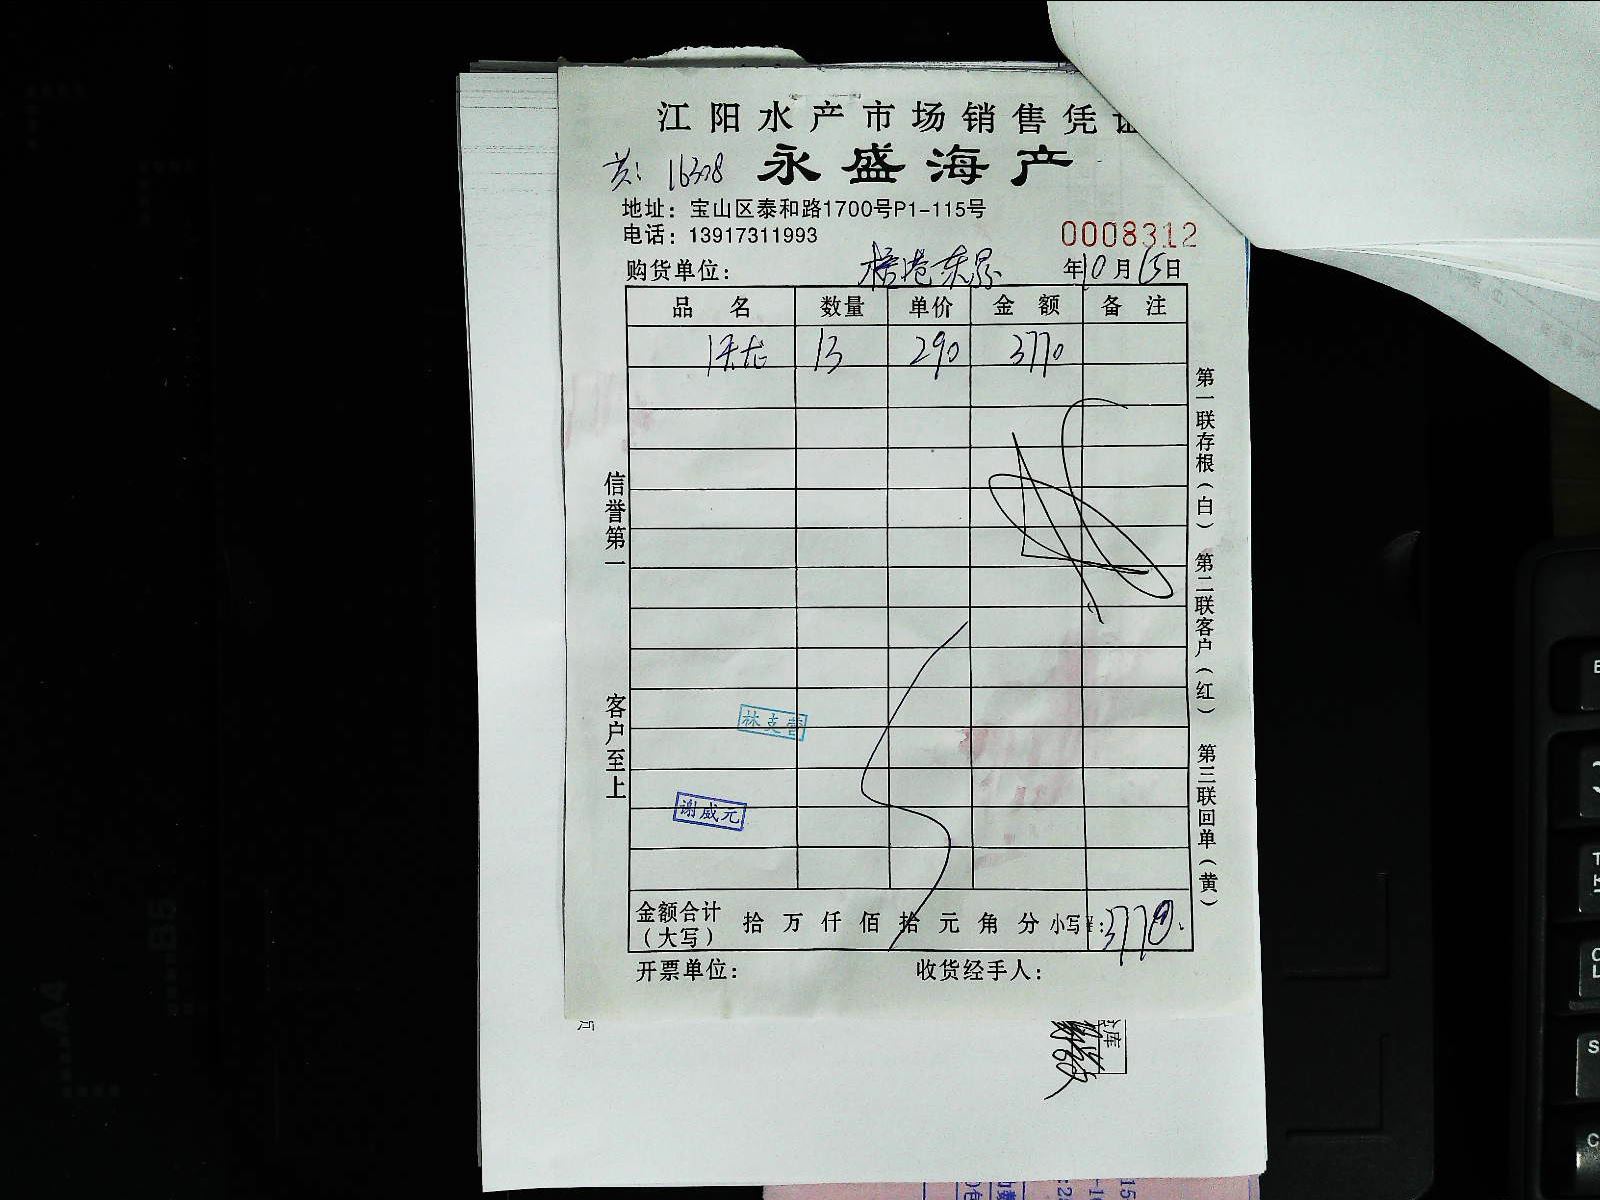 江阳水产市场销售凭证
16308 永盛海产
地址：宝山区泰和路1700号P1-115号
电话：13917311993
0008312
购货单位：
年10月15日
品名 数量 单价 金额 备注
13 290 3770
信誉第一
客户至上
第一联存根（白） 第二联客户（红） 第三联回单（黄）
谢威元
金额合计（大写） 拾 万 仟 佰 拾 元 角 分 小写 3770
开票单位： 收货经手人：
库